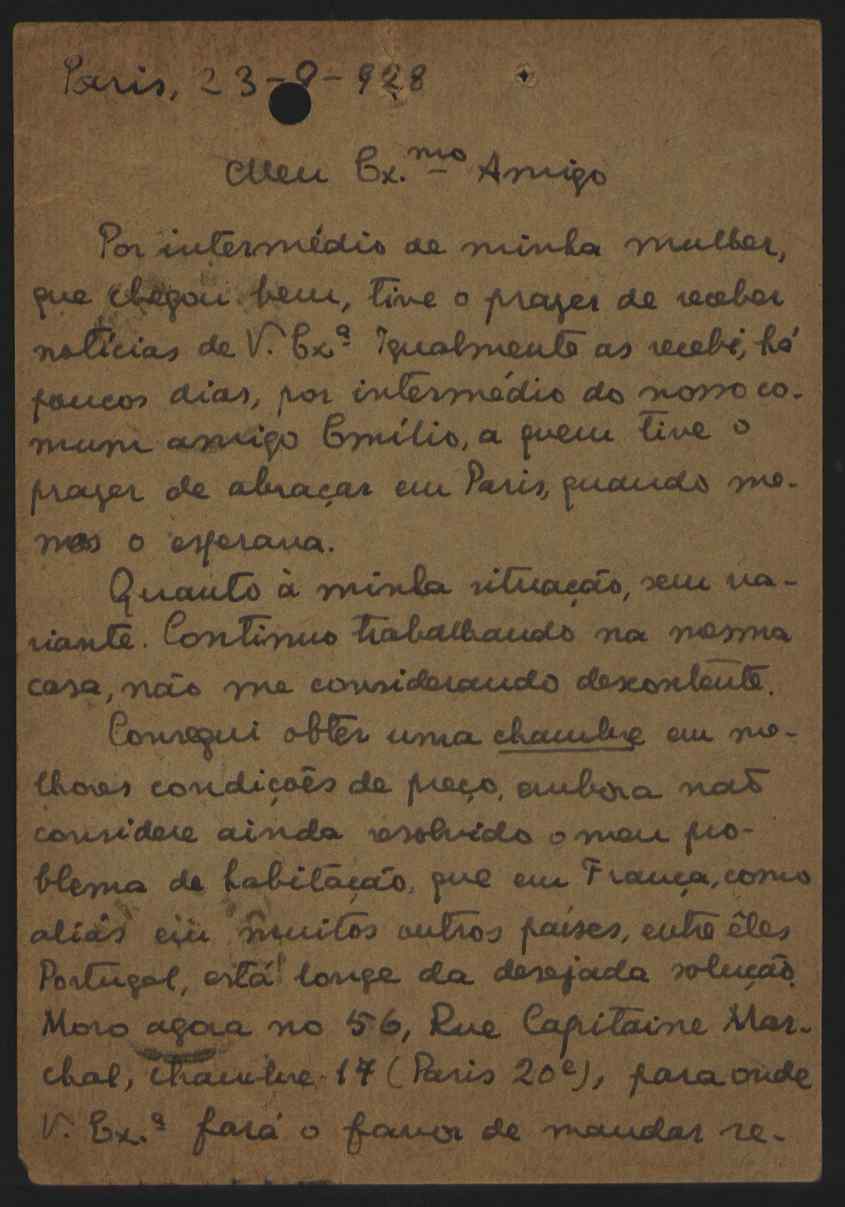 Paris, 23-9-928
Meu Ex.mo Amigo
Por intermédio de minha mulher,
que chegou bem, tive o prazer de receber
notícias de V. Exª Igualmente as recebi, há
poucos dias, por intermédio do nosso co-
mum amigo Emílio, a quem tive o
prazer de abraçar em Paris, quando me-
nos o esperava.
Quanto à minha situação, sem va-
riante. Continuo trabalhando na mesma
casa, não me considerando descontente.
Consegui obter uma chambre em me-
lhores condições de preço, embora não
considere ainda resolvido o meu pro-
blema de habitação, que em França, como
aliás em muitos outros países, entre êles
Portugal, está longe da desejada solução.
Moro agora no 56, Rue Capitaine Mar-
chal, chambre 17 (Paris 20e), para onde
V. Ex.ª fará o favor de mandar re-